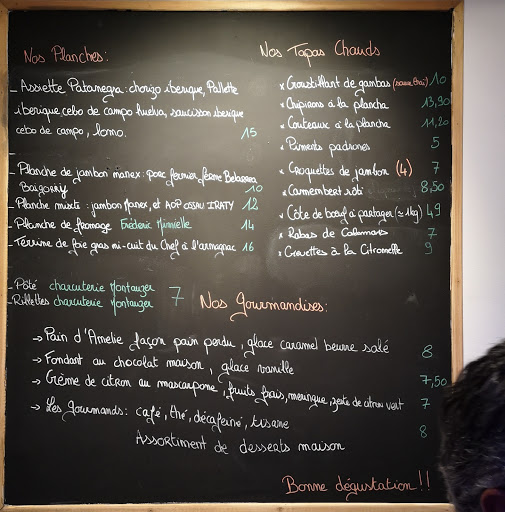 Nos Planches:
- Assiette Patanegra: chorizo iberique, Pallette
iberique cebo de campo huelva, saucisson iberique
cebo de campo, lomo. 15
-
- Planche de jambon manex: porc fermier, ferme Belaurra
Baigorry 10
- Planche mixte: jambon manex, et AOP OSSAU IRATY 12
- Planche de fromage Frédéric 14
- Terrine de foie gras mi-cuit du Chef à l'armagnac 16
- Pâté charcuterie Montauzer
- Rillettes charcuterie Montauzer 7
Nos Tapas Chauds
x Croustillant de gambas (sauce thaï) 10
x Chipirons à la plancha 13,90
x Couteaux à la plancha 11,20
x Piments padrones 5
x Croquettes de jambon (4) 7
x Camembert rôti 8,50
x Côte de boeuf à partager (≈ 1kg) 49
x Rabas de Calamars 7
x Crevettes à la Citronnelle 9
Nos gourmandises:
→ Pain d'Amelie façon pain perdu, glace caramel beurre salé 8
→ Fondant au chocolat maison, glace vanille 7,50
→ Crème de citron au mascarpone, fruits frais, meringue, zeste de citron vert 7
→ Les gourmands: café, thé, décafeiné, tisane
Assortiment de desserts maison 8
Bonne dégustation!!